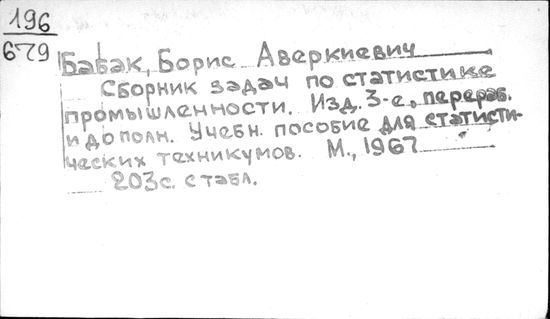 196
679
Бабак, Борис Аверкиевич
Сборник задач по статистике
промышленности. Изд. 3-е, перераб.
и дополн. Учебн. пособие для статисти-
ческих техникумов. М., 1967
203 с. с табл.